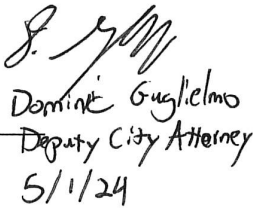 Dominic Guglielmo
Deputy City Attorney
5/1/24